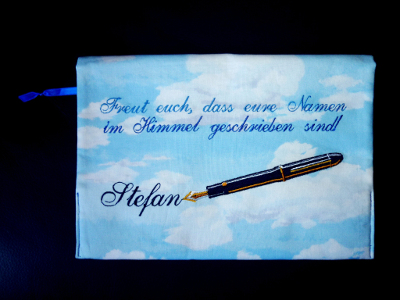 Freut euch, dass eure Namen
im Himmel geschrieben sind!
Stefan